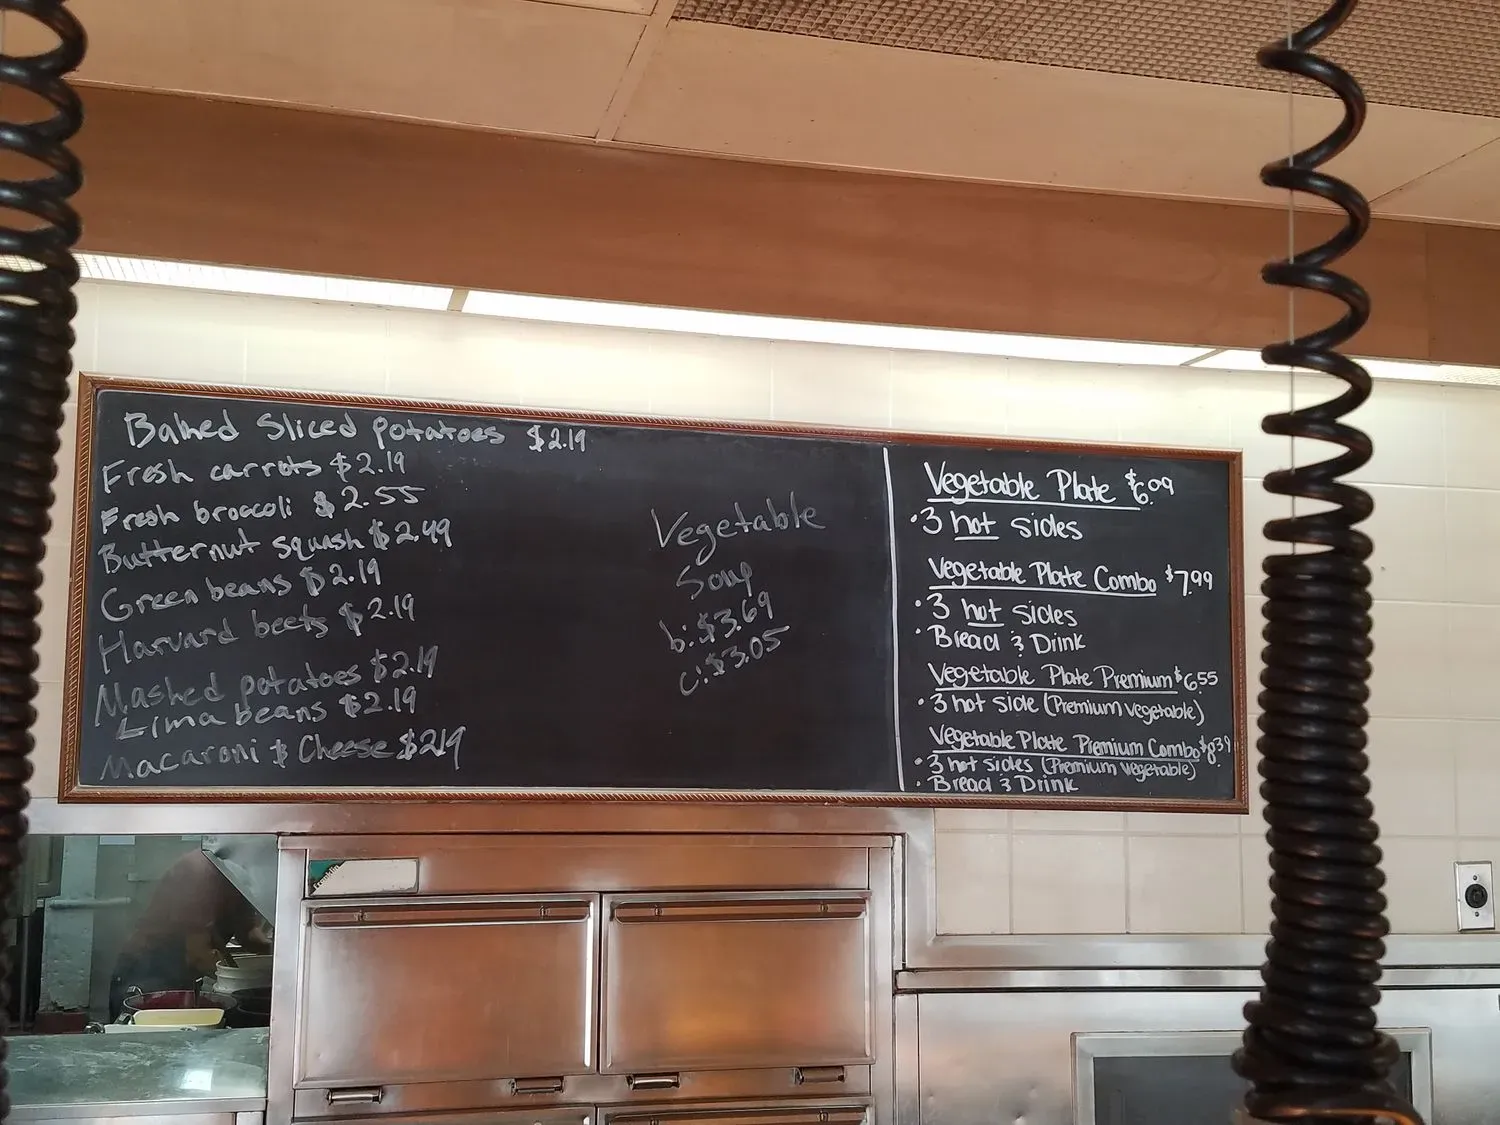 Baked Sliced potatoes $2.19
Fresh carrots $2.19
Fresh broccoli $2.55
Butternut squash $2.49
Green beans $2.19
Harvard beets $2.19
Mashed potatoes $2.19
Lima beans $2.19
Macaroni & Cheese $2.19
Vegetable
Soup
b: $3.69
c: $3.05
Vegetable Plate $6.09
• 3 hot sides
Vegetable Plate Combo $7.99
• 3 hot sides
• Bread & Drink
Vegetable Plate Premium $6.55
• 3 hot side (Premium vegetable)
Vegetable Plate Premium Combo $8.39
• 3 hot sides (Premium vegetable)
• Bread & Drink
Franklin